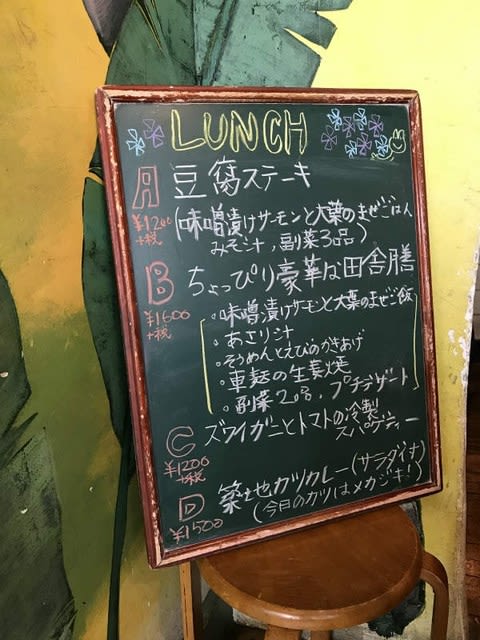 LUNCH
A 豆腐ステーキ
¥1200
+税
(味噌漬けサーモンと大葉のまぜごはん
みそ汁,副菜3品)
B ちょっぴり豪華な田舎膳
¥1600
+税
・味噌漬けサーモンと大葉のまぜご飯
・あさり汁
・そうめんとえびのかきあげ
・車麩の生姜焼
・副菜2品・プチデザート
C ズワイガニとトマトの冷製
スパゲティー
¥1200
+税
D 築地カツカレー(サラダ付)
¥1500
(今日のカツはメカジキ!)